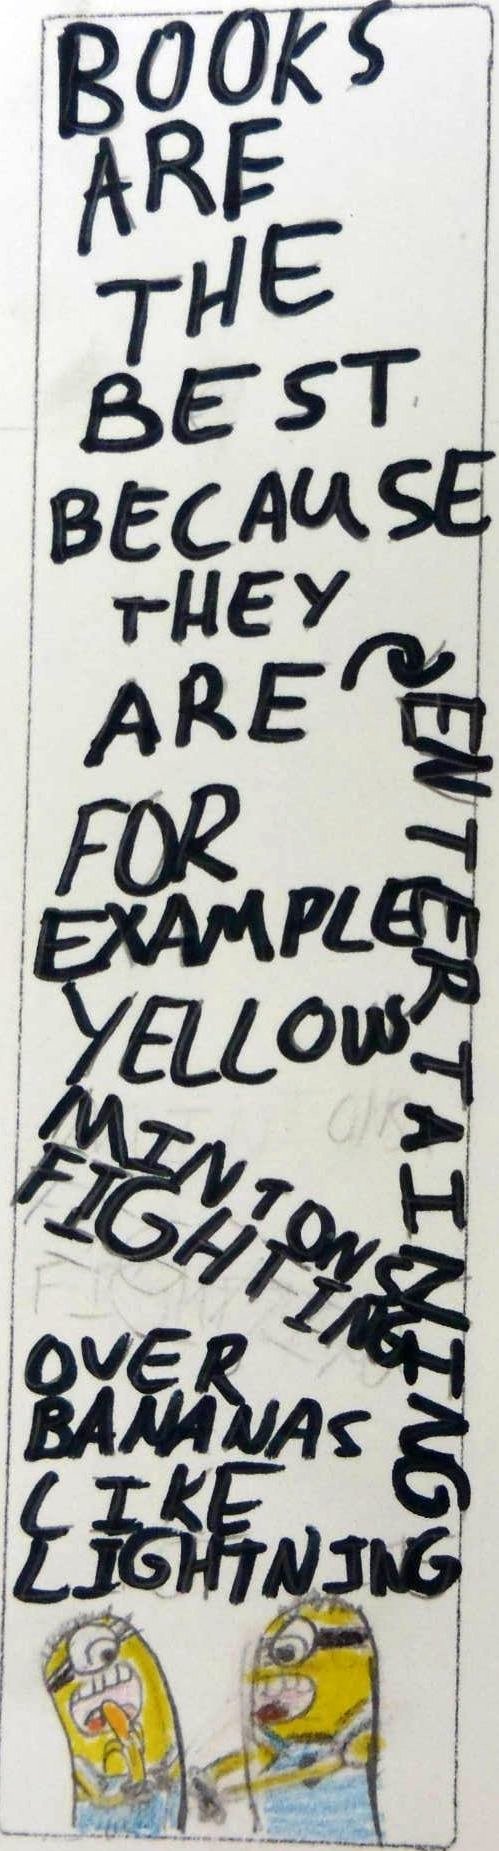 BOOKS
ARE
THE
BEST
BECAUSE
THEY
ARE
ENTERTAINING
FOR
EXAMPLE
YELLOW
MINTONS
FIGHTING
OVER
BANANAS
LIKE
LIGHTNING